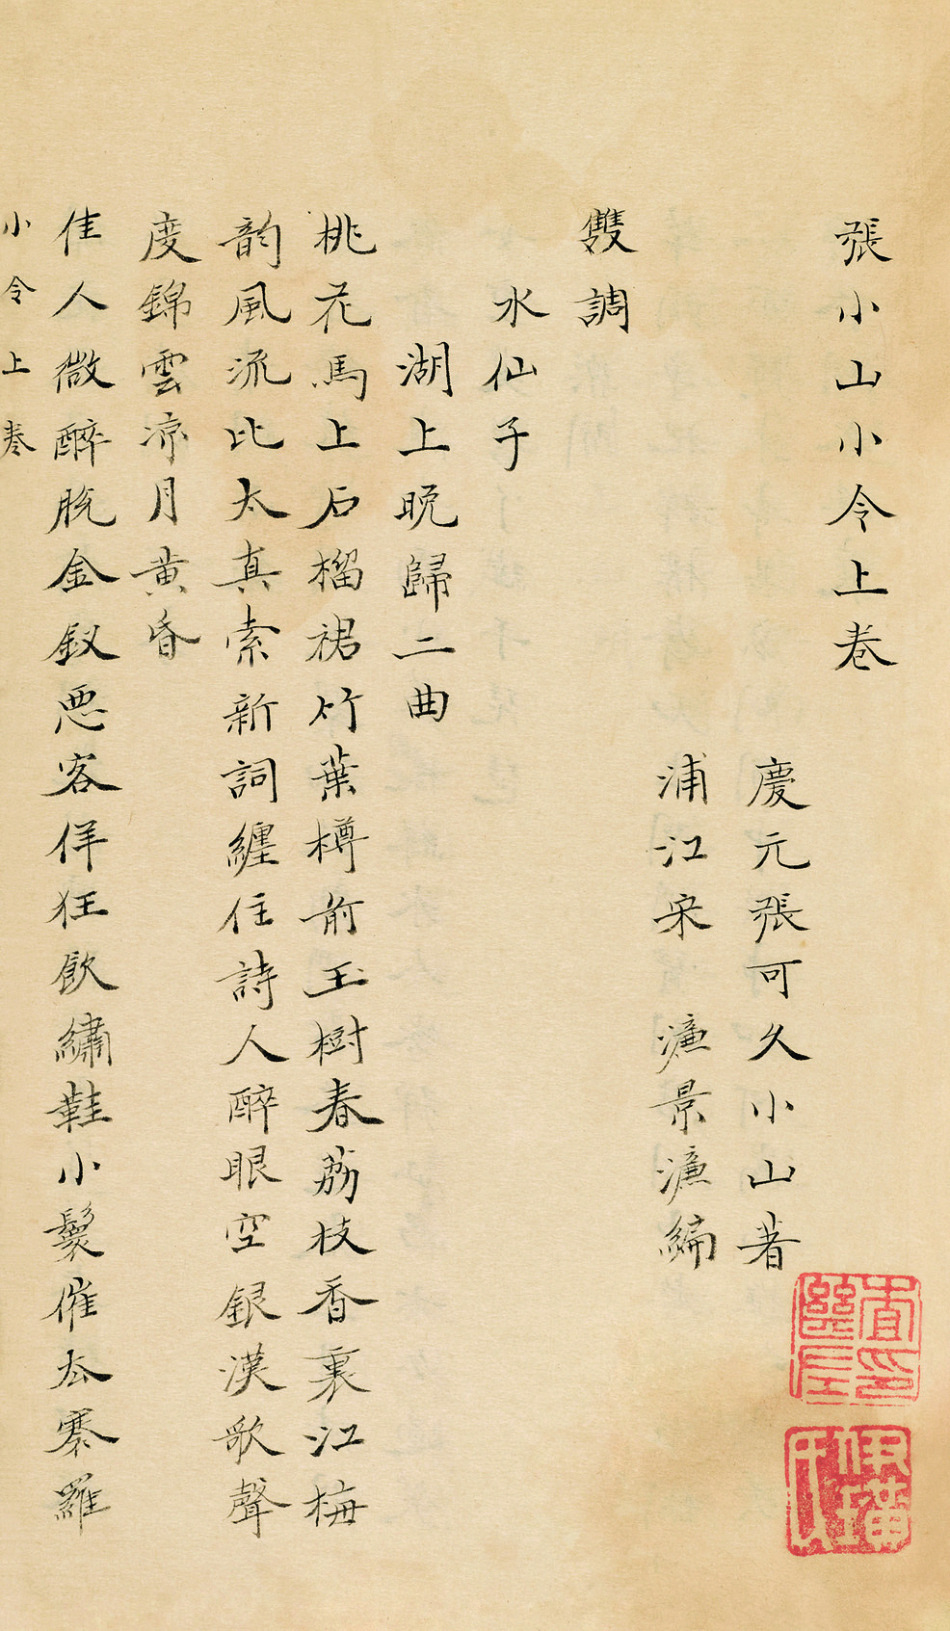 張小山小令上卷
慶元張可久小山著
浦江宋濂景濂編
雙調
水仙子
湖上晚歸二曲
桃花馬上石榴裙竹葉樽前玉樹春荔枝香裏江梅
韵風流比太真索新詞纏住詩人醉眼空銀漢歌聲
度錦雲凉月黄昏
佳人微醉脱金釵惡客佯狂飲繡鞋小鬟催去褰羅
小令上卷